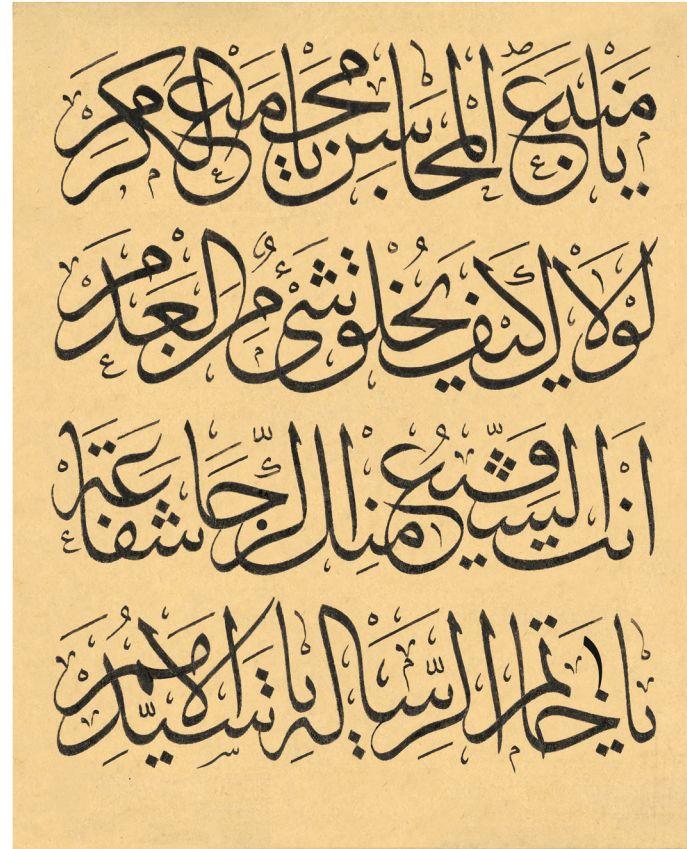 يا منبع المحاسن يا مجمع الكرم
لولاك كيف يخلق شئ من العدم
انت الشفيع منك الرجا شفاعة
يا خاتم الرسالة يا سيد الامم